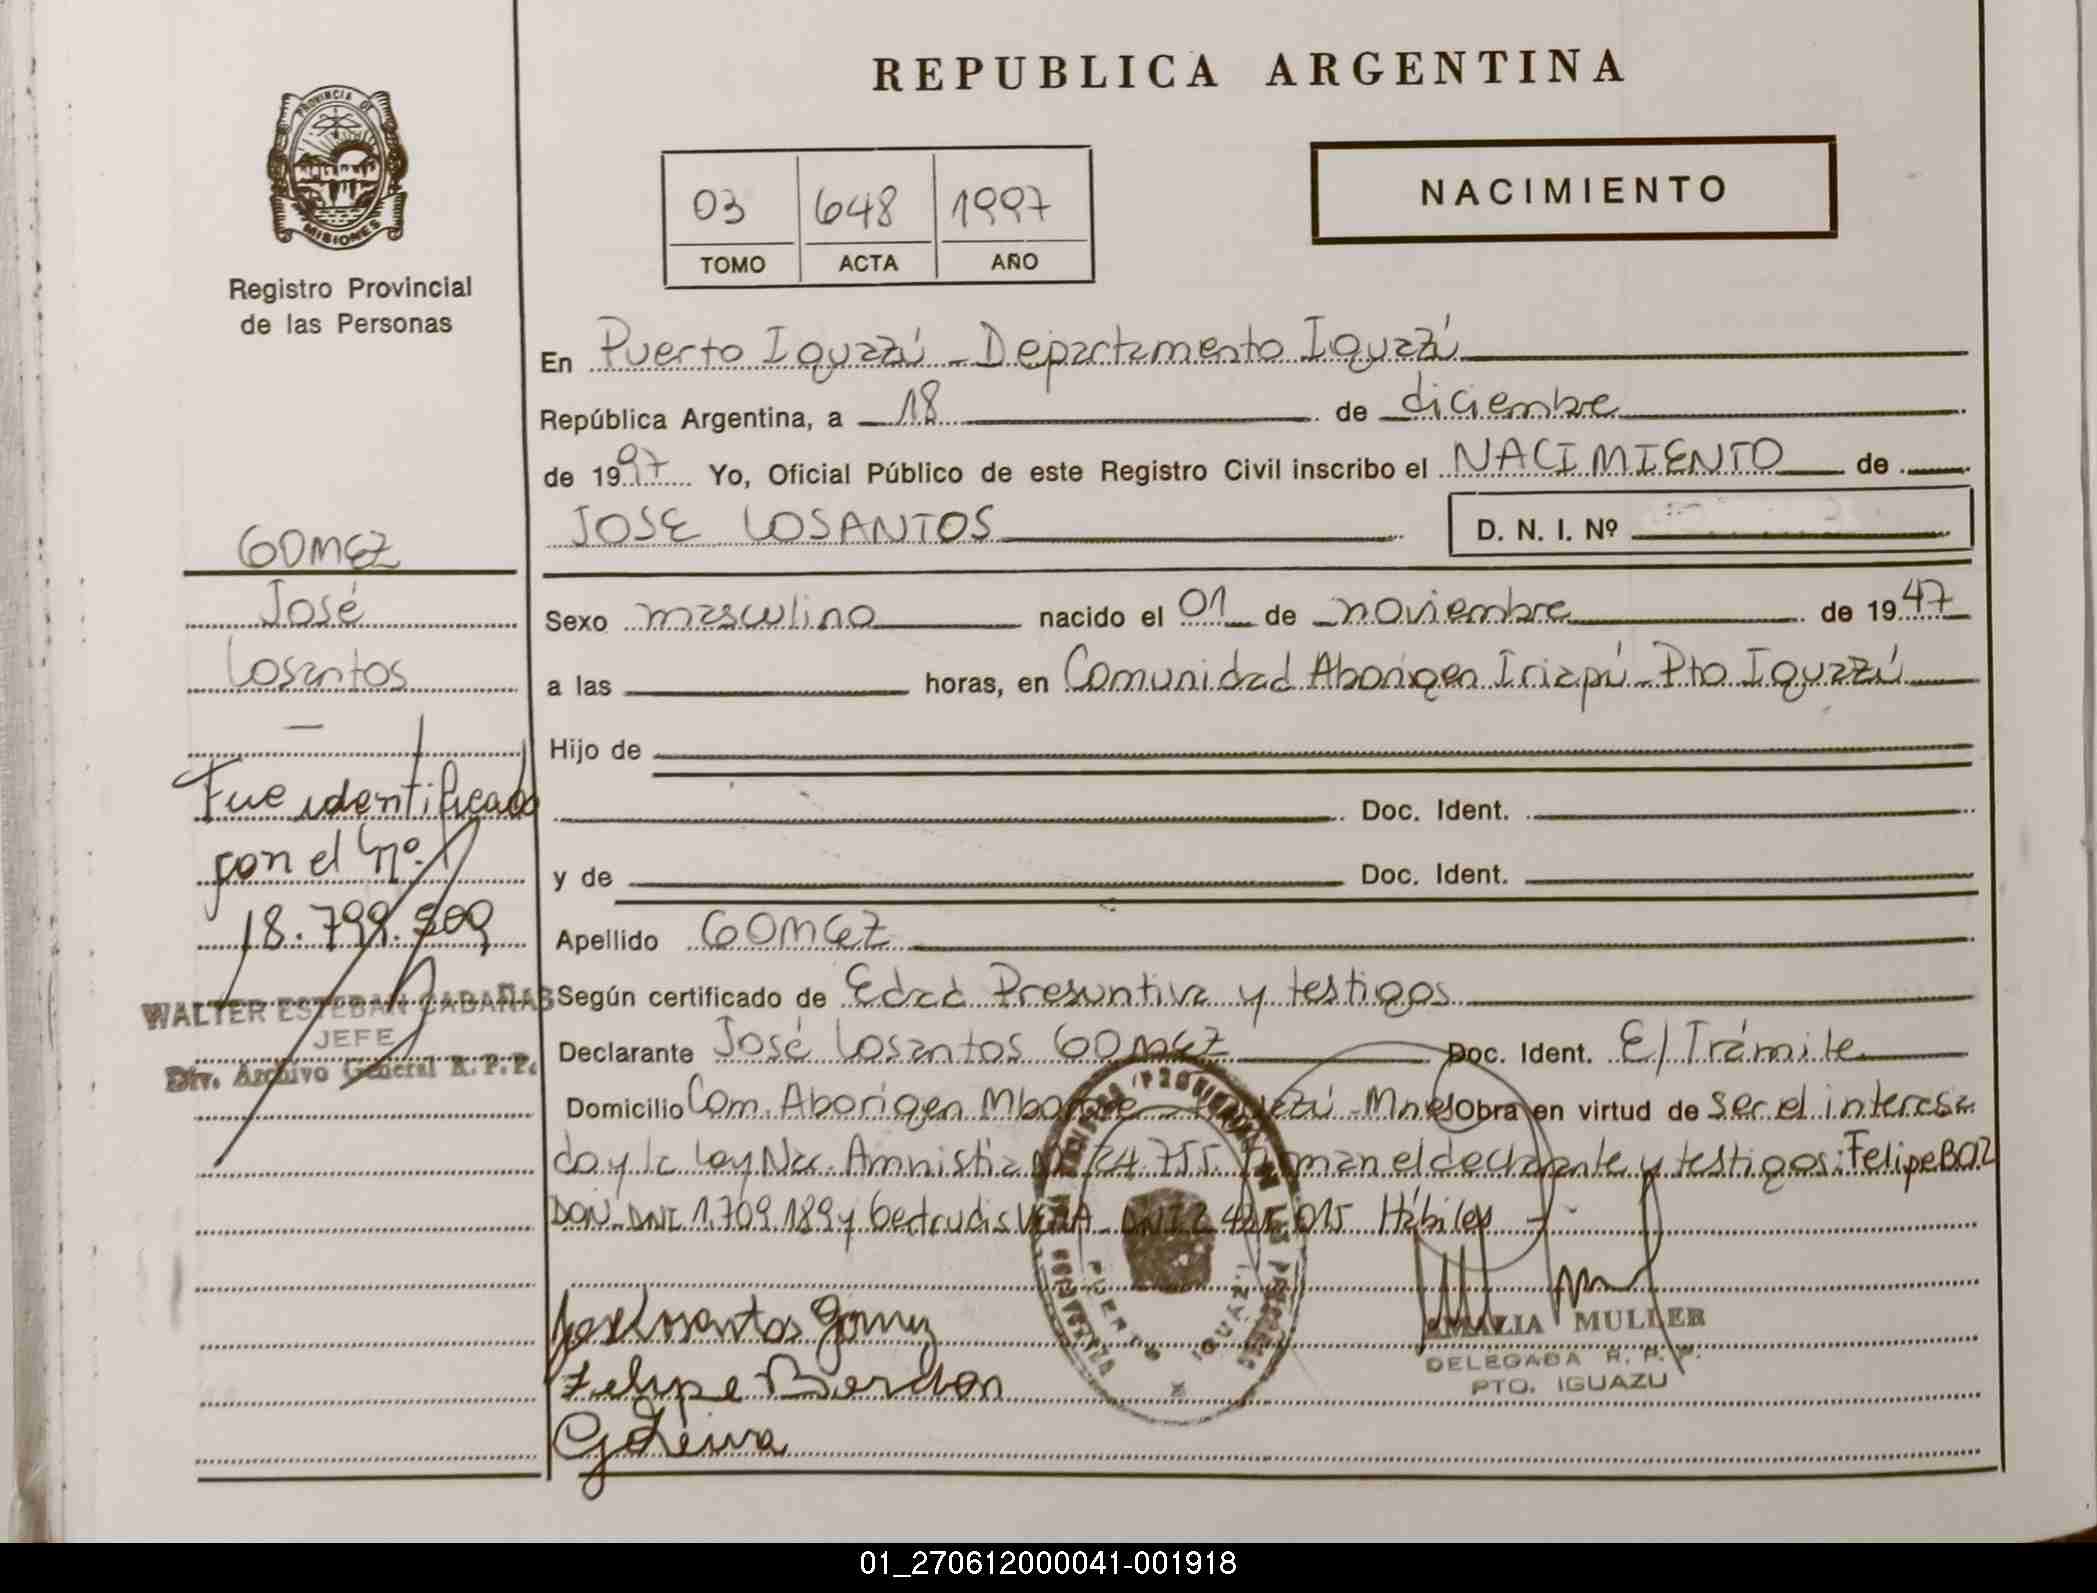 REPUBLICA ARGENTINA
PROVINCIA DE
MISIONES
Registro Provincial
de las Personas
03 648 1997
TOMO ACTA AÑO
NACIMIENTO
En Puerto Iguazú - Departamento Iguazú
República Argentina, a 18 de diciembre
de 1997 Yo, Oficial Público de este Registro Civil inscribo el NACIMIENTO de
JOSE LOSANTOS D. N. I. Nº
GOMEZ
José
Losantos
Sexo masculino nacido el 01 de noviembre de 1947
a las horas, en Comunidad Aborigen Iriapú - Pto Iguazú
Hijo de
Doc. Ident.
y de Doc. Ident.
Fue identificado
con el Nº
18.799.509
WALTER ESTEBAN CABAÑAS
JEFE
Div. Archivo General R. P. P.
Apellido GOMEZ
Según certificado de Edad Presuntiva y testigos
Declarante José Losantos GOMEZ Doc. Ident. E/Trámite
Domicilio Com. Aborigen Mnes Obra en virtud de ser el interesa
do y la Ley Nac. Amnistia 24.755. Firman el declarante y testigos: Felipe BOR
DON - DNI 1.709.189 y Gertrudis - DNI 015 Hábiles
Jose Losantos Gomez
Felipe Bordon
PUERTO IGUAZU
AMALIA MULLER
DELEGADA R. P. P.
PTO. IGUAZU
01_270612000041-001918